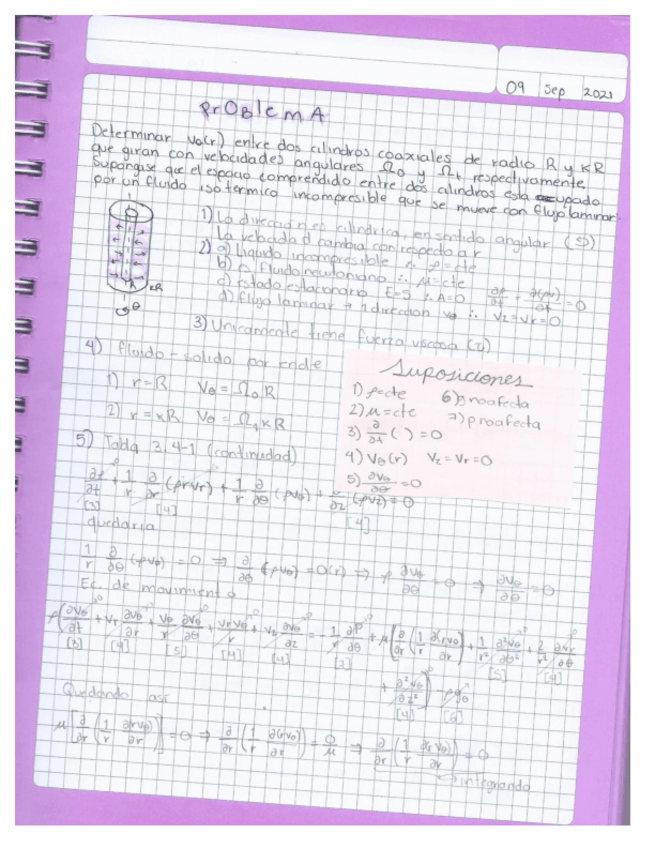 09 Sep 2021
PrOBlemA
Determinar vθ(r) entre dos cilindros coaxiales de radio R y κR
que giran con velocidades angulares Ω₀ y Ω₁, respectivamente.
Supongase que el espacio comprendido entre dos cilindros esta ocupado
por un fluido isotermico incompresible que se mueve con flujo laminar.
1) La direccion es cilindrica, en sentido angular (↺)
La velocidad cambia con respecto a r
2) a) liquido incompresible ∴ ρ=cte
b) fluido newtoniano ∴ μ=cte
c) Estado estacionario E=S ∴ A=0 ∂ρ/∂t + ∂(ρv)/∂t = 0
d) flujo laminar → 1 direccion vθ ∴ Vz=Vr=0
κR
θ
3) Unicamente tiene fuerza viscosa
4) fluido - solido por ende
1) r=R Vθ = Ω₀R
2) r = κR Vθ = Ω₁κR
Suposiciones
1) ρ=cte
2) μ=cte
3) ∂/∂t ( ) = 0
4) Vθ(r) Vz=Vr=0
5) ∂vθ/∂θ = 0
6) g no afecta
7) p no afecta
5) Tabla 3.4-1 (continuidad)
∂ρ/∂t + 1/r ∂/∂r (ρrvr) + 1/r ∂/∂θ (ρvθ) + ∂/∂z (ρvz) = 0
[3] [4] [4]
quedaria
1/r ∂/∂θ (ρvθ) = 0 ⇒ ∂/∂θ (ρvθ) = 0(r) ⇒ ρ ∂vθ/∂θ = 0 ⇒ ∂vθ/∂θ = 0
Ec. de movimiento
ρ(∂vθ/∂t + vr ∂vθ/∂r + vθ/r ∂vθ/∂θ + vrvθ/r + vz ∂vθ/∂z = - 1/r ∂P/∂θ + μ[∂/∂r (1/r ∂(rvθ)/∂r) + 1/r² ∂²vθ/∂θ² + 2/r² ∂vr/∂θ
[3] [4] [5] [4] [4] [5] [4]
+ ∂²vθ/∂z²] - ρgθ
[4] [6]
Quedando asi
μ[∂/∂r (1/r ∂rvθ/∂r)] = 0 ⇒ ∂/∂r (1/r ∂(rvθ)/∂r) = 0/μ ⇒ ∂/∂r (1/r ∂(rvθ)/∂r) = 0
→ integrando